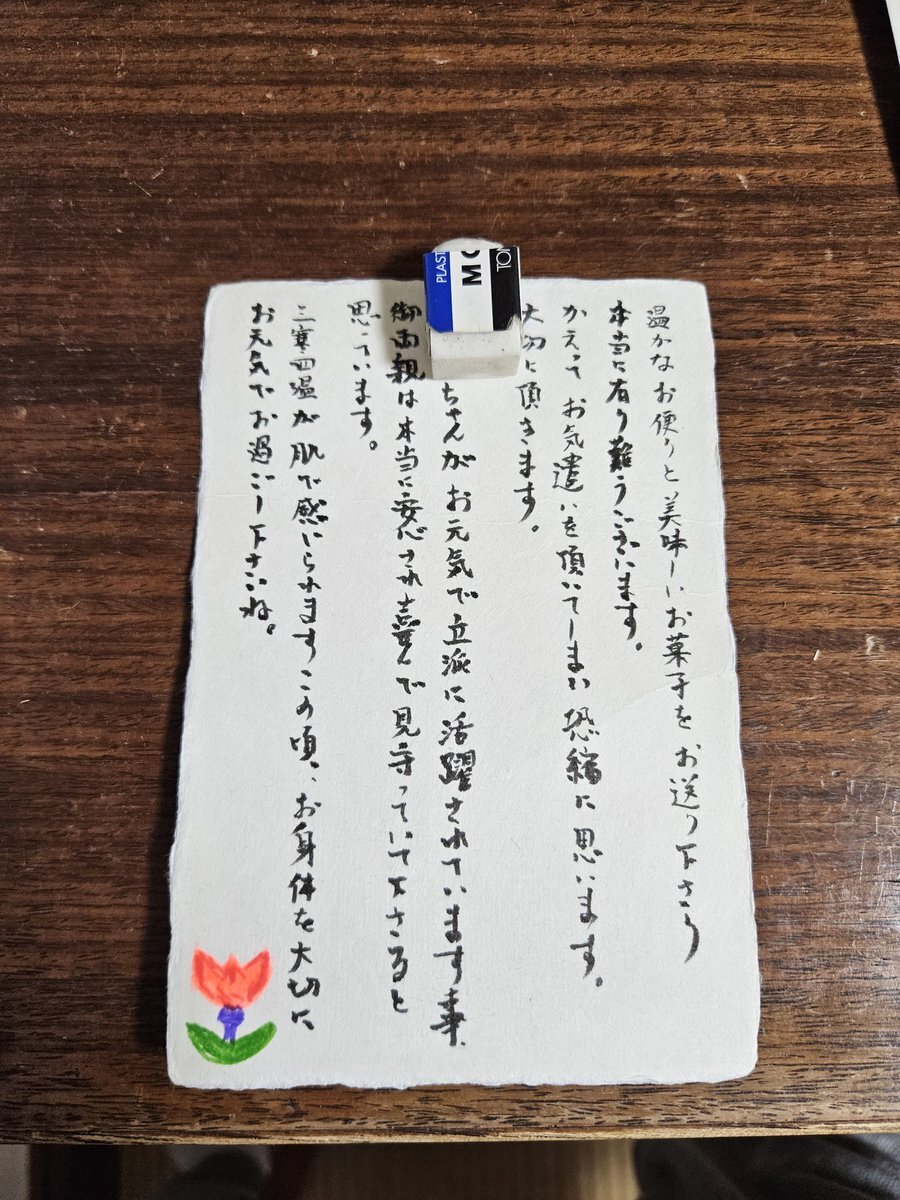 温かなお便りと美味しいお菓子をお送り下さり
本当に有り難うございます。
かえって お気遣いを頂いてしまい 恐縮に思います。
大切に頂きます。
ちさんが お元気で立派に活躍されています事
御両親は本当に安心され喜んで見守っていて下さると
思っています。
三寒四温が肌で感じられますこの頃、お身体を大切に
お元気でお過ごし下さいね。
PLAST
MO
TOM